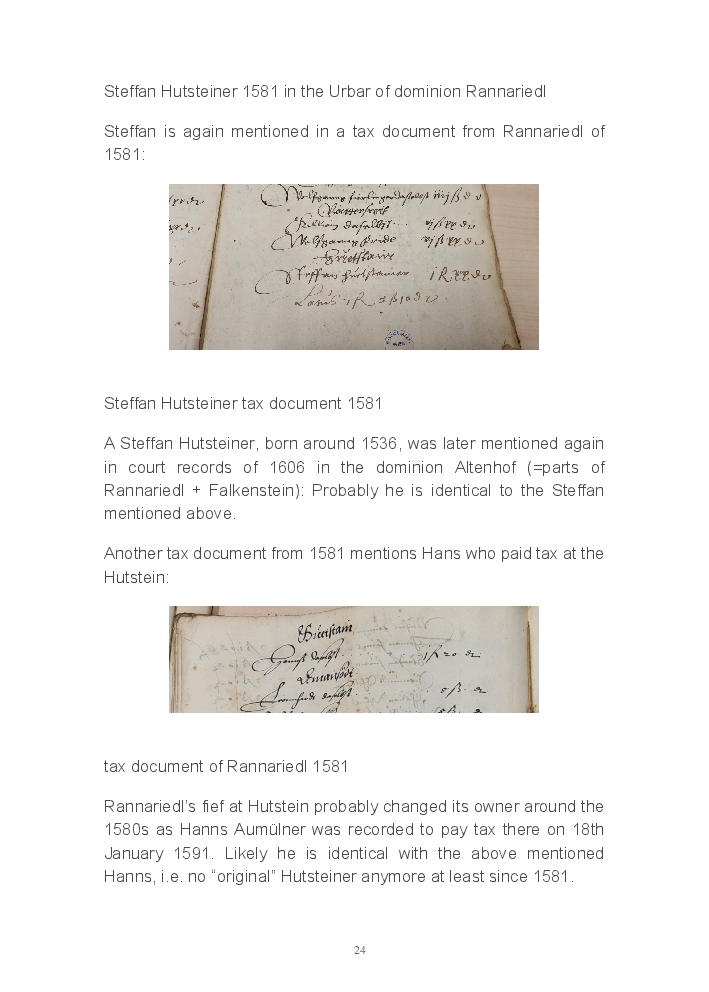 Steffan Hutsteiner 1581 in the Urbar of dominion Rannariedl
Steffan is again mentioned in a tax document from Rannariedl of
1581:
Steffan
Steffan Hutsteiner tax document 1581
A Steffan Hutsteiner, born around 1536, was later mentioned again
in court records of 1606 in the dominion Altenhof (=parts of
Rannariedl + Falkenstein): Probably he is identical to the Steffan
mentioned above.
Another tax document from 1581 mentions Hans who paid tax at the
Hutstein:
tax document of Rannariedl 1581
Rannariedl's fief at Hutstein probably changed its owner around the
1580s as Hanns Aumülner was recorded to pay tax there on 18th
January 1591. Likely he is identical with the above mentioned
Hanns, i.e. no “original” Hutsteiner anymore at least since 1581.
24